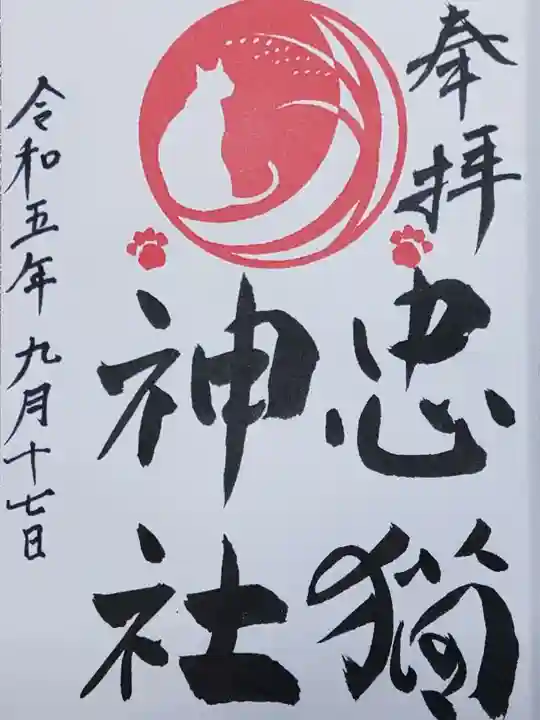 奉拝
忠猫
神社
令和五年九月十七日